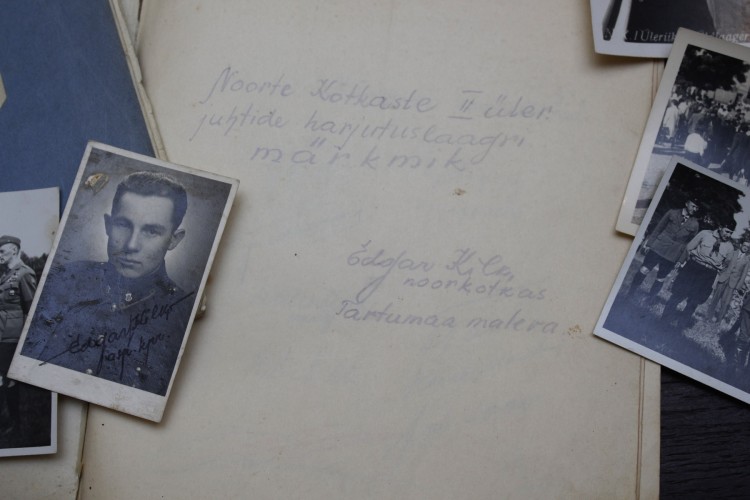 Noorte Kotkaste II üler.
juhtide harjutuslaagri
märkmik
Edgar Kilk
noorkotkas
Tartumaa maleva
Edgar Kilk
asp. kpr.